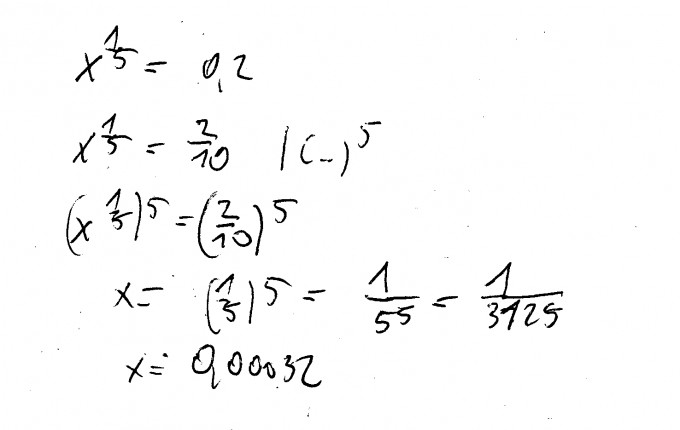 x^(1/5) = 0,2
x^(1/5) = 2/10 |(-)^5
(x^(1/5))^5 = (2/10)^5
x = (1/5)^5 = 1/5^5 = 1/3125
x = 0,00032